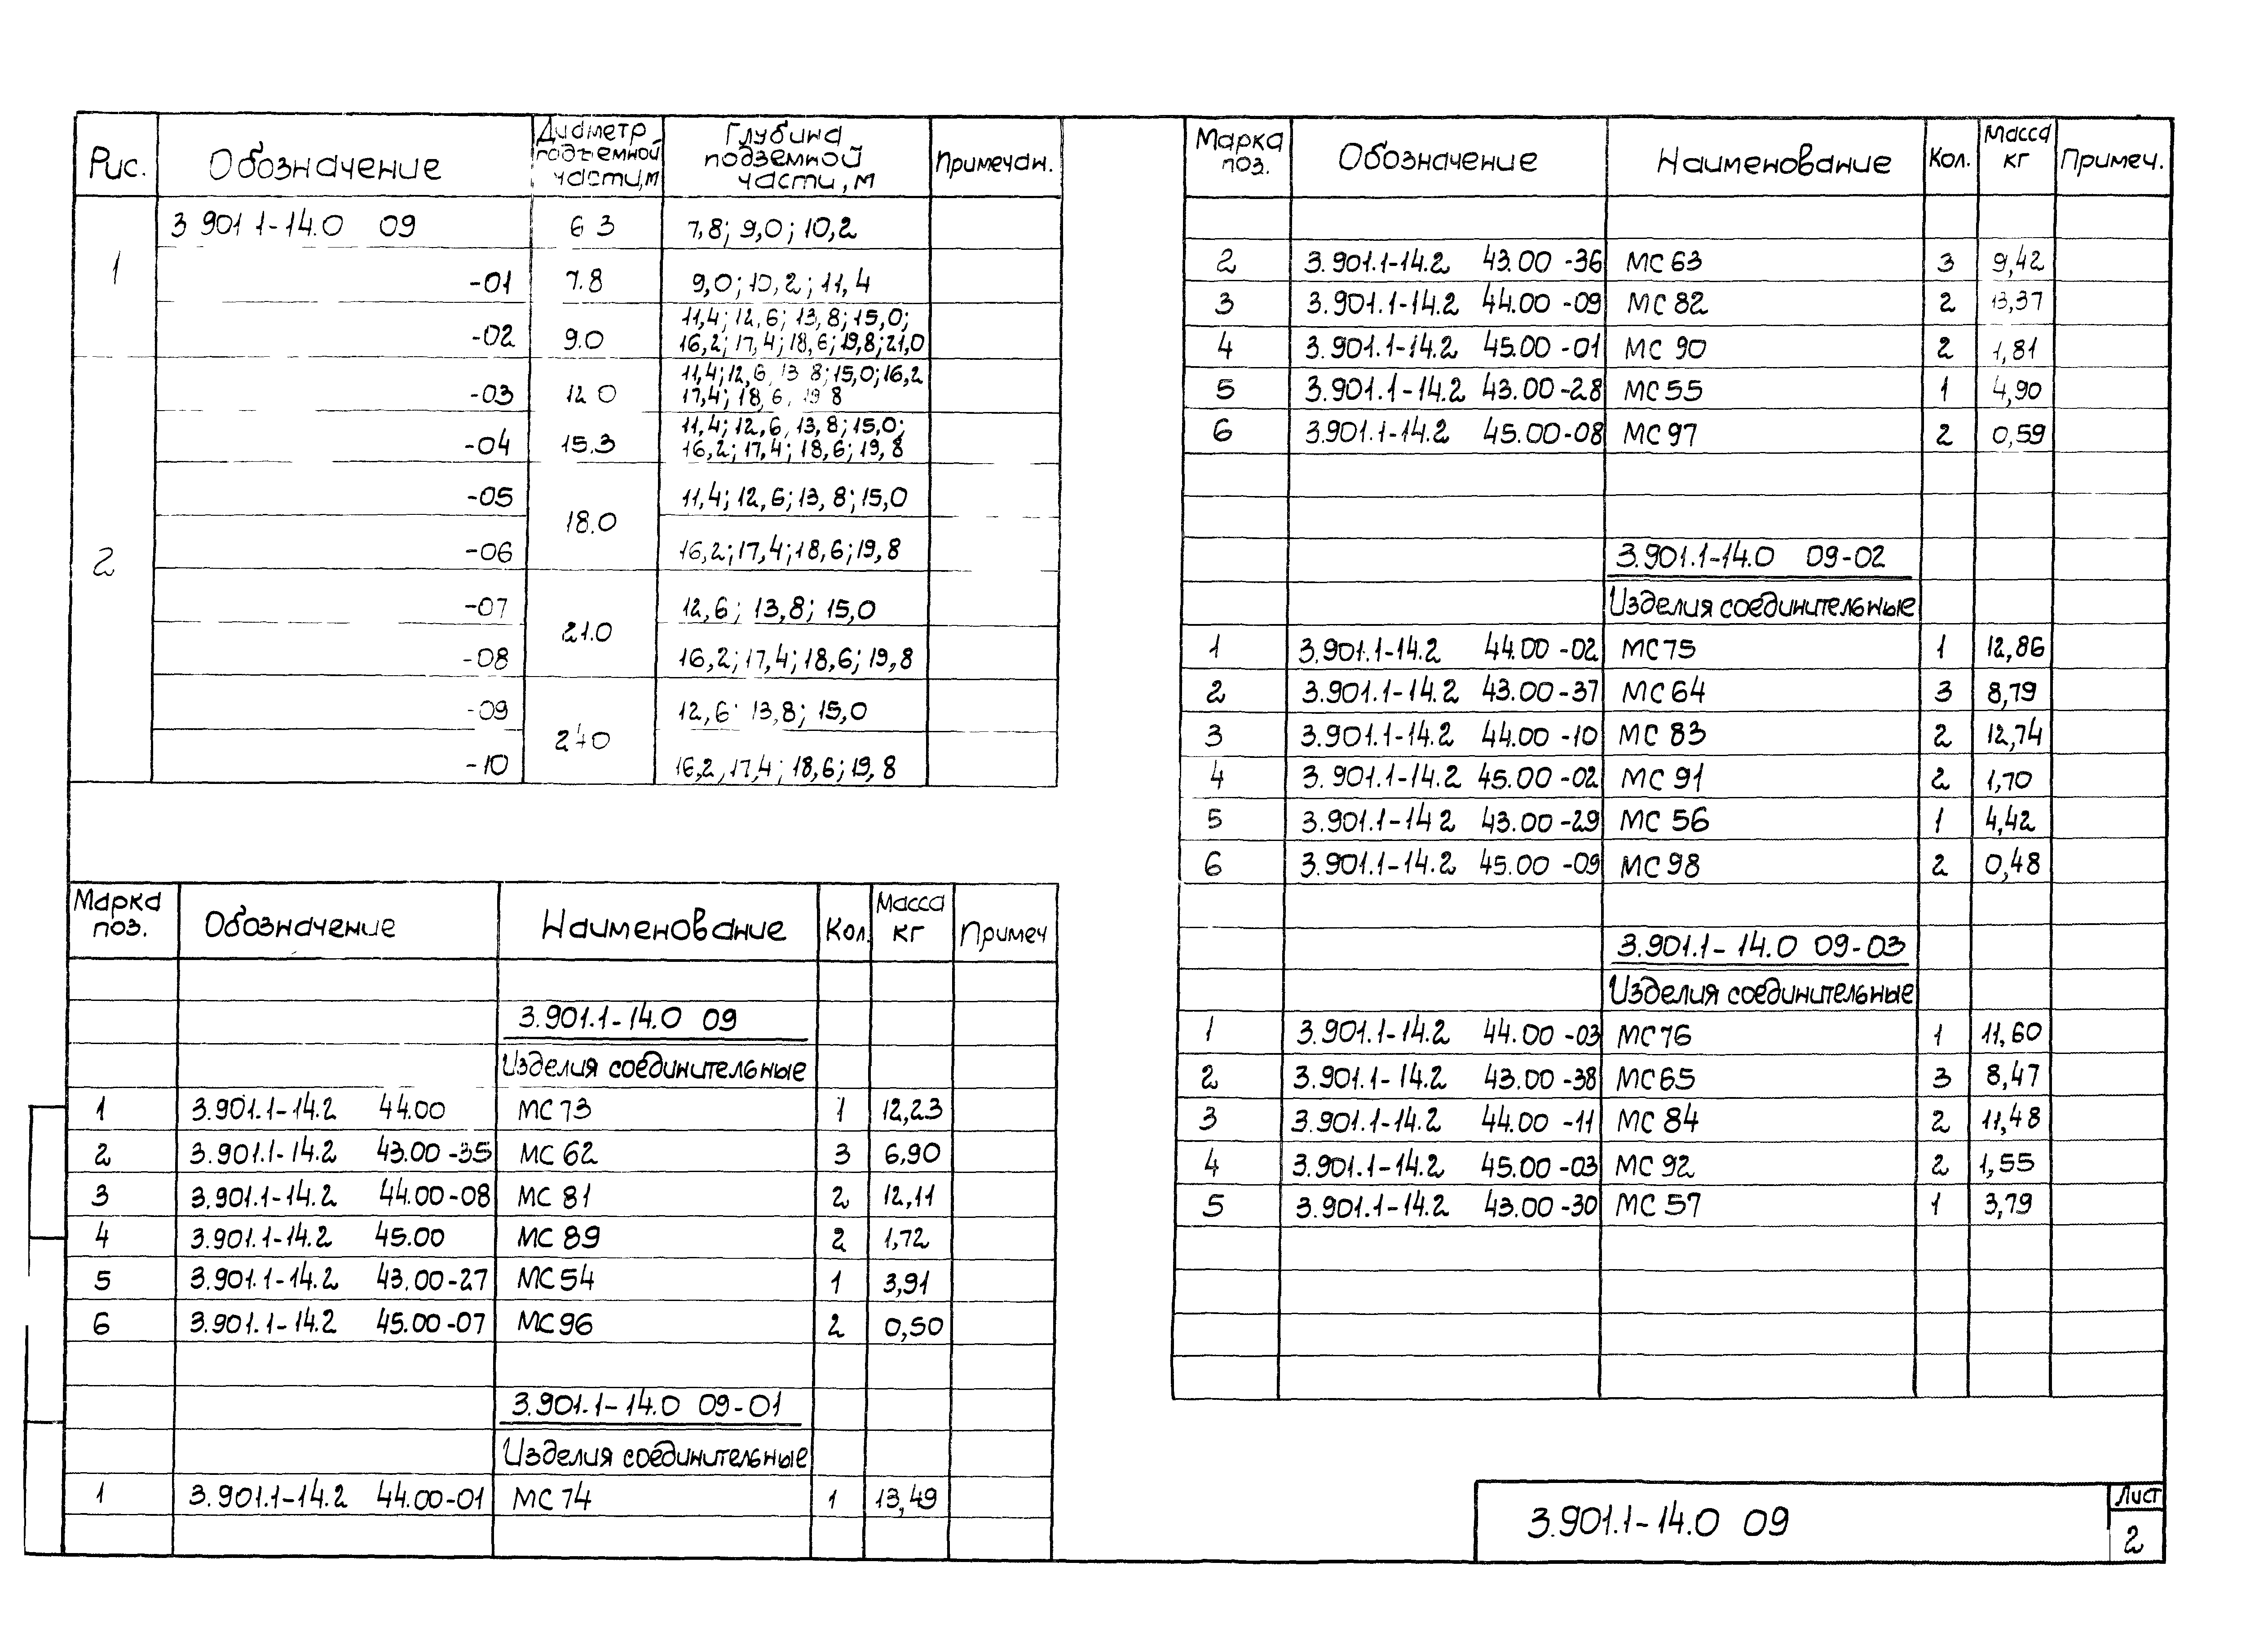 Рис. Обозначение Диаметр подъемной части, м Глубина подземной части, м Примечан.
1 3 901 1-14.0 09 6 3 7,8; 9,0; 10,2
-01 7.8 9,0; 10,2; 11,4
-02 9.0 11,4; 12,6; 13,8; 15,0;
16,2; 17,4; 18,6; 19,8; 21,0
2 -03 12 0 11,4; 12,6, 13 8; 15,0; 16,2
17,4; 18,6, 19 8
-04 15.3 11,4; 12,6, 13,8; 15,0;
16,2; 17,4; 18,6; 19,8
-05 18.0 11,4; 12,6; 13,8; 15,0
-06 16,2; 17,4; 18,6; 19,8
-07 21.0 12,6; 13,8; 15,0
-08 16,2; 17,4; 18,6; 19,8
-09 240 12,6; 13,8; 15,0
-10 16,2, 17,4; 18,6; 19,8
Марка поз. Обозначение Наименование Кол. Масса кг Примеч
3.901.1-14.0 09
Изделия соединительные
1 3.901.1-14.2 44.00 МС 73 1 12,23
2 3.901.1-14.2 43.00-35 МС 62 3 6,90
3 3.901.1-14.2 44.00-08 МС 81 2 12,11
4 3.901.1-14.2 45.00 МС 89 2 1,72
5 3.901.1-14.2 43.00-27 МС 54 1 3,91
6 3.901.1-14.2 45.00-07 МС 96 2 0,50
3.901.1-14.0 09-01
Изделия соединительные
1 3.901.1-14.2 44.00-01 МС 74 1 13,49
Марка поз. Обозначение Наименование Кол. Масса кг Примеч.
2 3.901.1-14.2 43.00-36 МС 63 3 9,42
3 3.901.1-14.2 44.00-09 МС 82 2 13,37
4 3.901.1-14.2 45.00-01 МС 90 2 1,81
5 3.901.1-14.2 43.00-28 МС 55 1 4,90
6 3.901.1-14.2 45.00-08 МС 97 2 0,59
3.901.1-14.0 09-02
Изделия соединительные
1 3.901.1-14.2 44.00-02 МС 75 1 12,86
2 3.901.1-14.2 43.00-37 МС 64 3 8,79
3 3.901.1-14.2 44.00-10 МС 83 2 12,74
4 3.901.1-14.2 45.00-02 МС 91 2 1,70
5 3.901.1-14 2 43.00-29 МС 56 1 4,42
6 3.901.1-14.2 45.00-09 МС 98 2 0,48
3.901.1-14.0 09-03
Изделия соединительные
1 3.901.1-14.2 44.00-03 МС 76 1 11,60
2 3.901.1-14.2 43.00-38 МС 65 3 8,47
3 3.901.1-14.2 44.00-11 МС 84 2 11,48
4 3.901.1-14.2 45.00-03 МС 92 2 1,55
5 3.901.1-14.2 43.00-30 МС 57 1 3,79
3.901.1-14.0 09
Лист
2